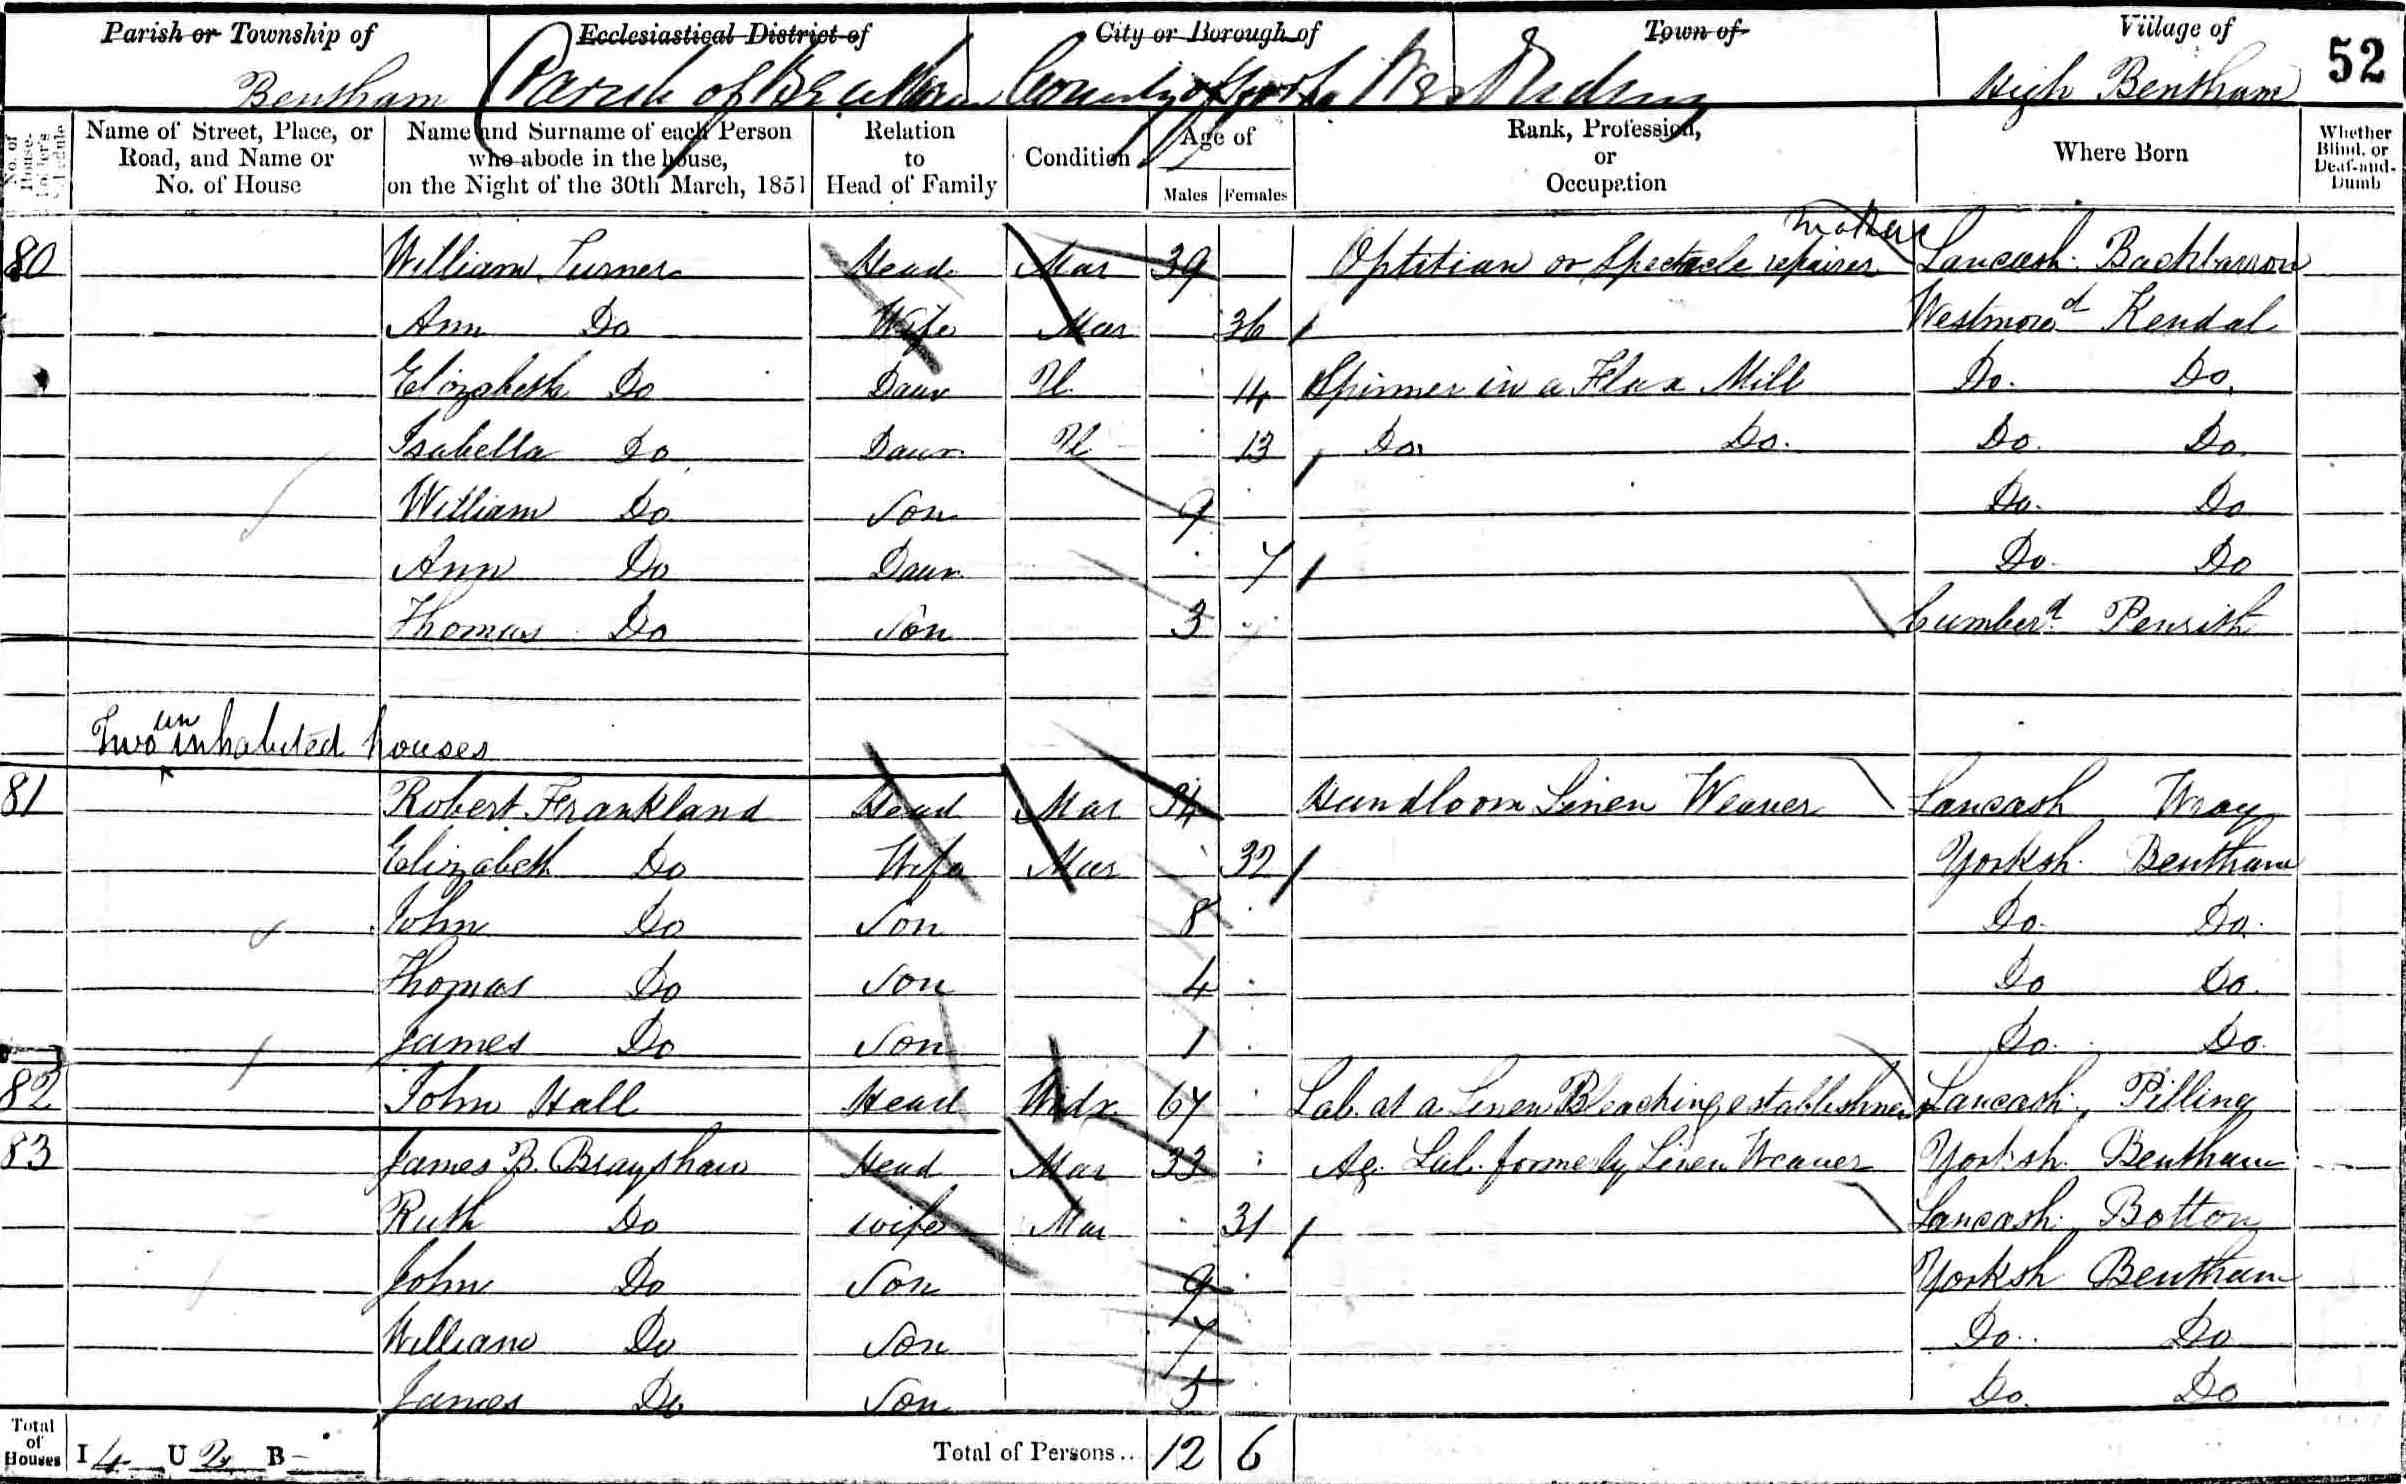 Parish or Township of Ecclesiastical District of City or Borough of Town of Village of 52
Bentham Parish of Bentham County of York West Riding High Bentham
No. of House-holder's Schedule Name of Street, Place, or Road, and Name or No. of House Name and Surname of each Person who abode in the house, on the Night of the 30th March, 1851 Relation to Head of Family Condition Age of Males Females Rank, Profession, or Occupation Where Born Whether Blind, or Deaf-and-Dumb
maker
80 William Turner Head Mar 39 Optitian or Spectacle repairer Lancash. Backbarrow
Ann Do Wife Mar 36 Westmored Kendal
Elizabeth Do Daur U 14 Spinner in a Flax Mill Do. Do.
Isabella Do Daur U 13 Do. Do. Do. Do.
William Do Son 9 Do. Do
Ann Do Daur 7 Do. Do
Thomas Do Son 3 Cumberd. Penrith
Two uninhabited houses
81 Robert Frankland Head Mar 34 Handloom Linen Weaver Lancash Wray
Elizabeth Do Wife Mar 32 Yorksh. Bentham
John Do Son 8 Do. Do.
Thomas Do Son 4 Do Do.
James Do Son 1 Do. Do.
82 John Hall Head Widr. 67 Lab. at a Linen Bleaching establishment Lancash. Pilling
83 James B. Brayshaw Head Mar 33 Ag. Lab. formerly Linen Weaver Yorksh. Bentham
Ruth Do wife Mar 31 Lancash. Botton
John Do Son 9 Yorksh Bentham
William Do Son 7 Do. Do
James Do Son 5 Do. Do
Total of Houses I 4 U 2 B - Total of Persons.. 12 6